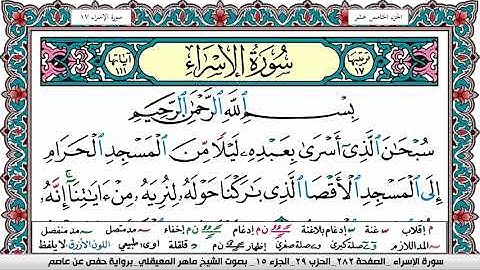 الجزء الخامس عشر
سورة الإسراء ١٧
ترتيبها ١٧
سُورَةُ الإِسْرَاءِ
آياتها ١١١
بِسْمِ اللَّهِ الرَّحْمَٰنِ الرَّحِيمِ
سُبْحَٰنَ الَّذِىٓ أَسْرَىٰ بِعَبْدِهِۦ لَيْلًا مِّنَ الْمَسْجِدِ الْحَرَامِ
إِلَى الْمَسْجِدِ الْأَقْصَا الَّذِى بَٰرَكْنَا حَوْلَهُۥ لِنُرِيَهُۥ مِنْ ءَايَٰتِنَآ ۚ إِنَّهُۥ
إقلاب غنة إدغام بلاغنة ن م إدغام ن م إخفاء مد متصل مد منفصل
المد اللازم صلة كبرى صلة صغرى إظهار ن م قلقلة طبيعي اللون الأزرق لا يلفظ
سورة الإسراء _ الصفحة ٢٨٢ _ الحزب ٢٩ _ الجزء ١٥ _ بصوت الشيخ ماهر المعيقلي _ برواية حفص عن عاصم